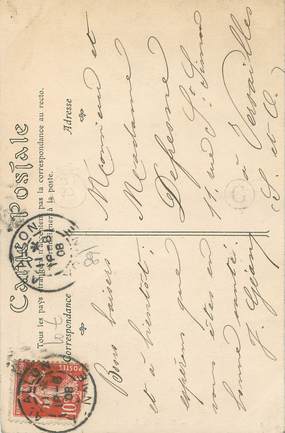 Carte Postale
Tous les pays étrangers n'acceptent pas la correspondance au recto.
à la poste.
Correspondance
Adresse
Bons baisers
et à bientôt,
espérons que
vous êtes en
bonne santé.
J.
Monsieur et
Madame
Defesne
11 rue St Simon
à Versailles
S. et O.
08
10